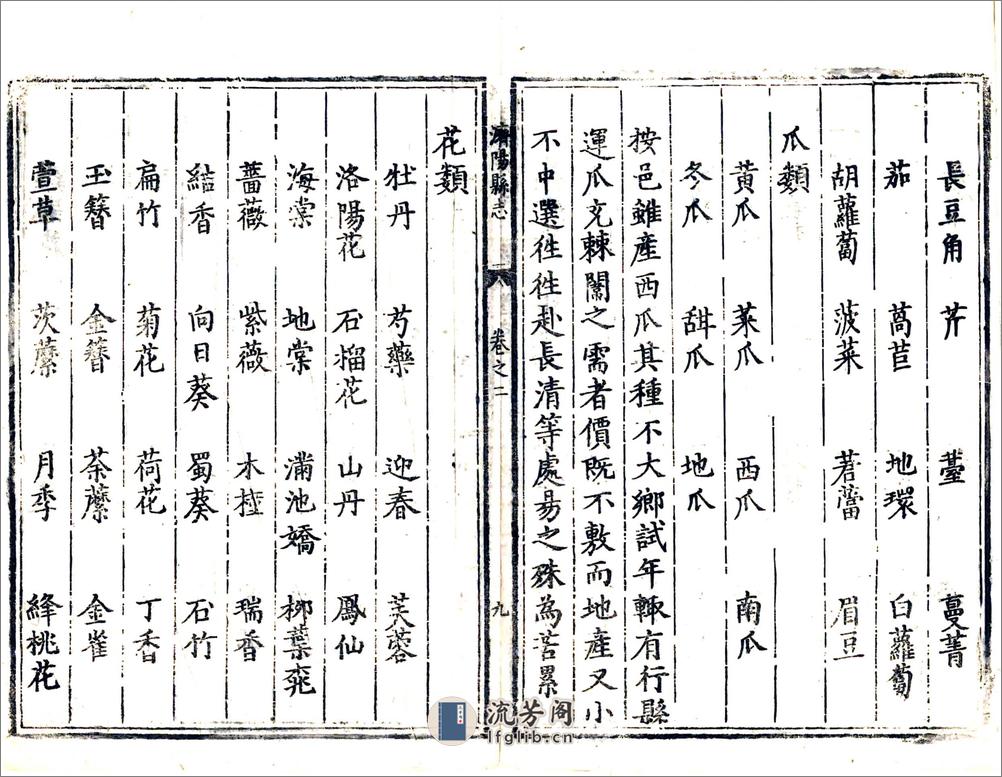 長豆角 芹 薹 蔓菁
茄 萵苣 地環 白蘿蔔
胡蘿蔔 菠菜 莙薘 眉豆
瓜類
黃瓜 菜瓜 西瓜 南瓜
冬瓜 甜瓜 地瓜
按邑雖產西瓜其種不大鄉試年輒有行縣
運瓜充棘闈之需者價既不敷而地產又小
不中選徃徃赴長清等處易之殊為苦累
濟陽縣志 卷之二 九
花類
牡丹 芍藥 迎春 芙蓉
洛陽花 石榴花 山丹 鳳仙
海棠 地棠 滿池嬌 柳葉桃
薔薇 紫薇 木槿 瑞香
結香 向日葵 蜀葵 石竹
扁竹 菊花 荷花 丁香
玉簪 金簪 荼蘼 金雀
萱草 茨蘼 月季 絳桃花
流芳阁
lfglib.cn